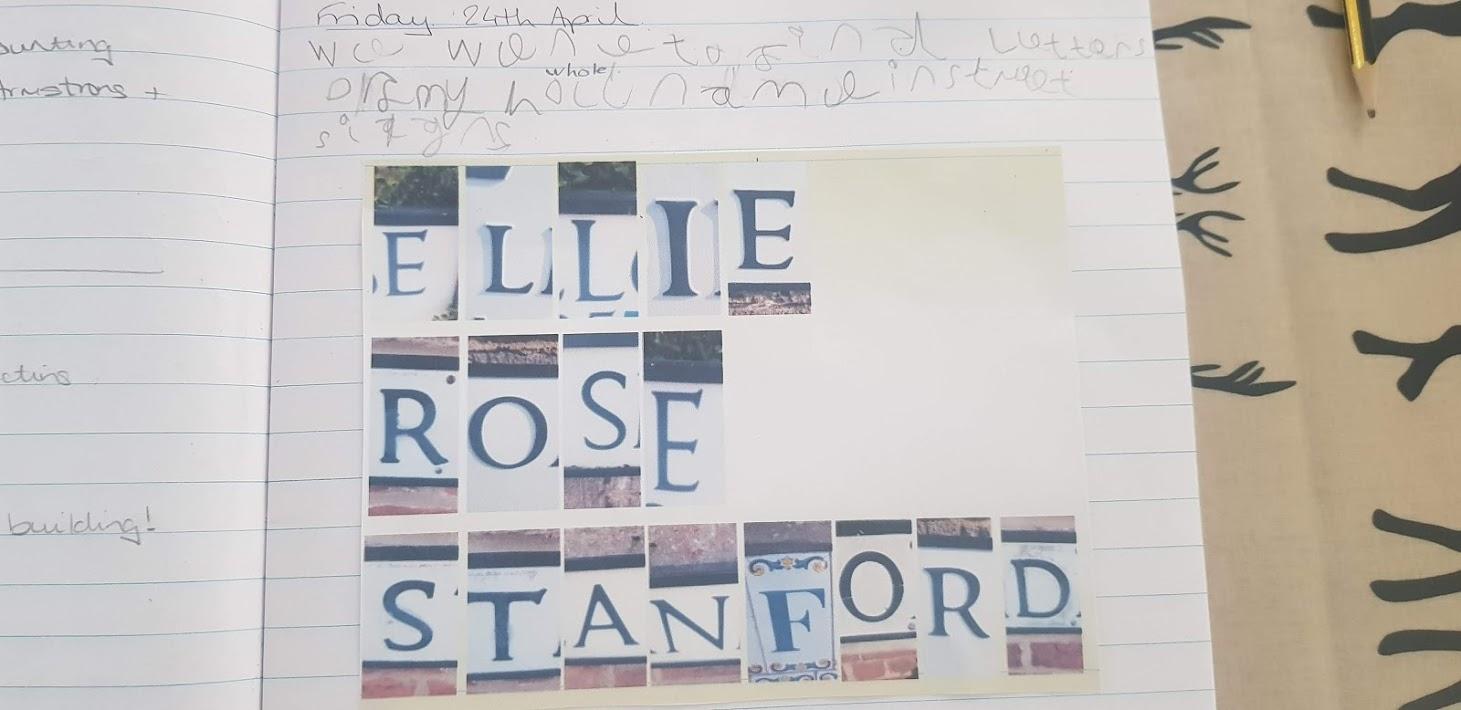 ounting
+
building!
Friday 24th April
we were to find letters
of my holl name in street
whole
signs
ELLIE
ROSE
STANFORD